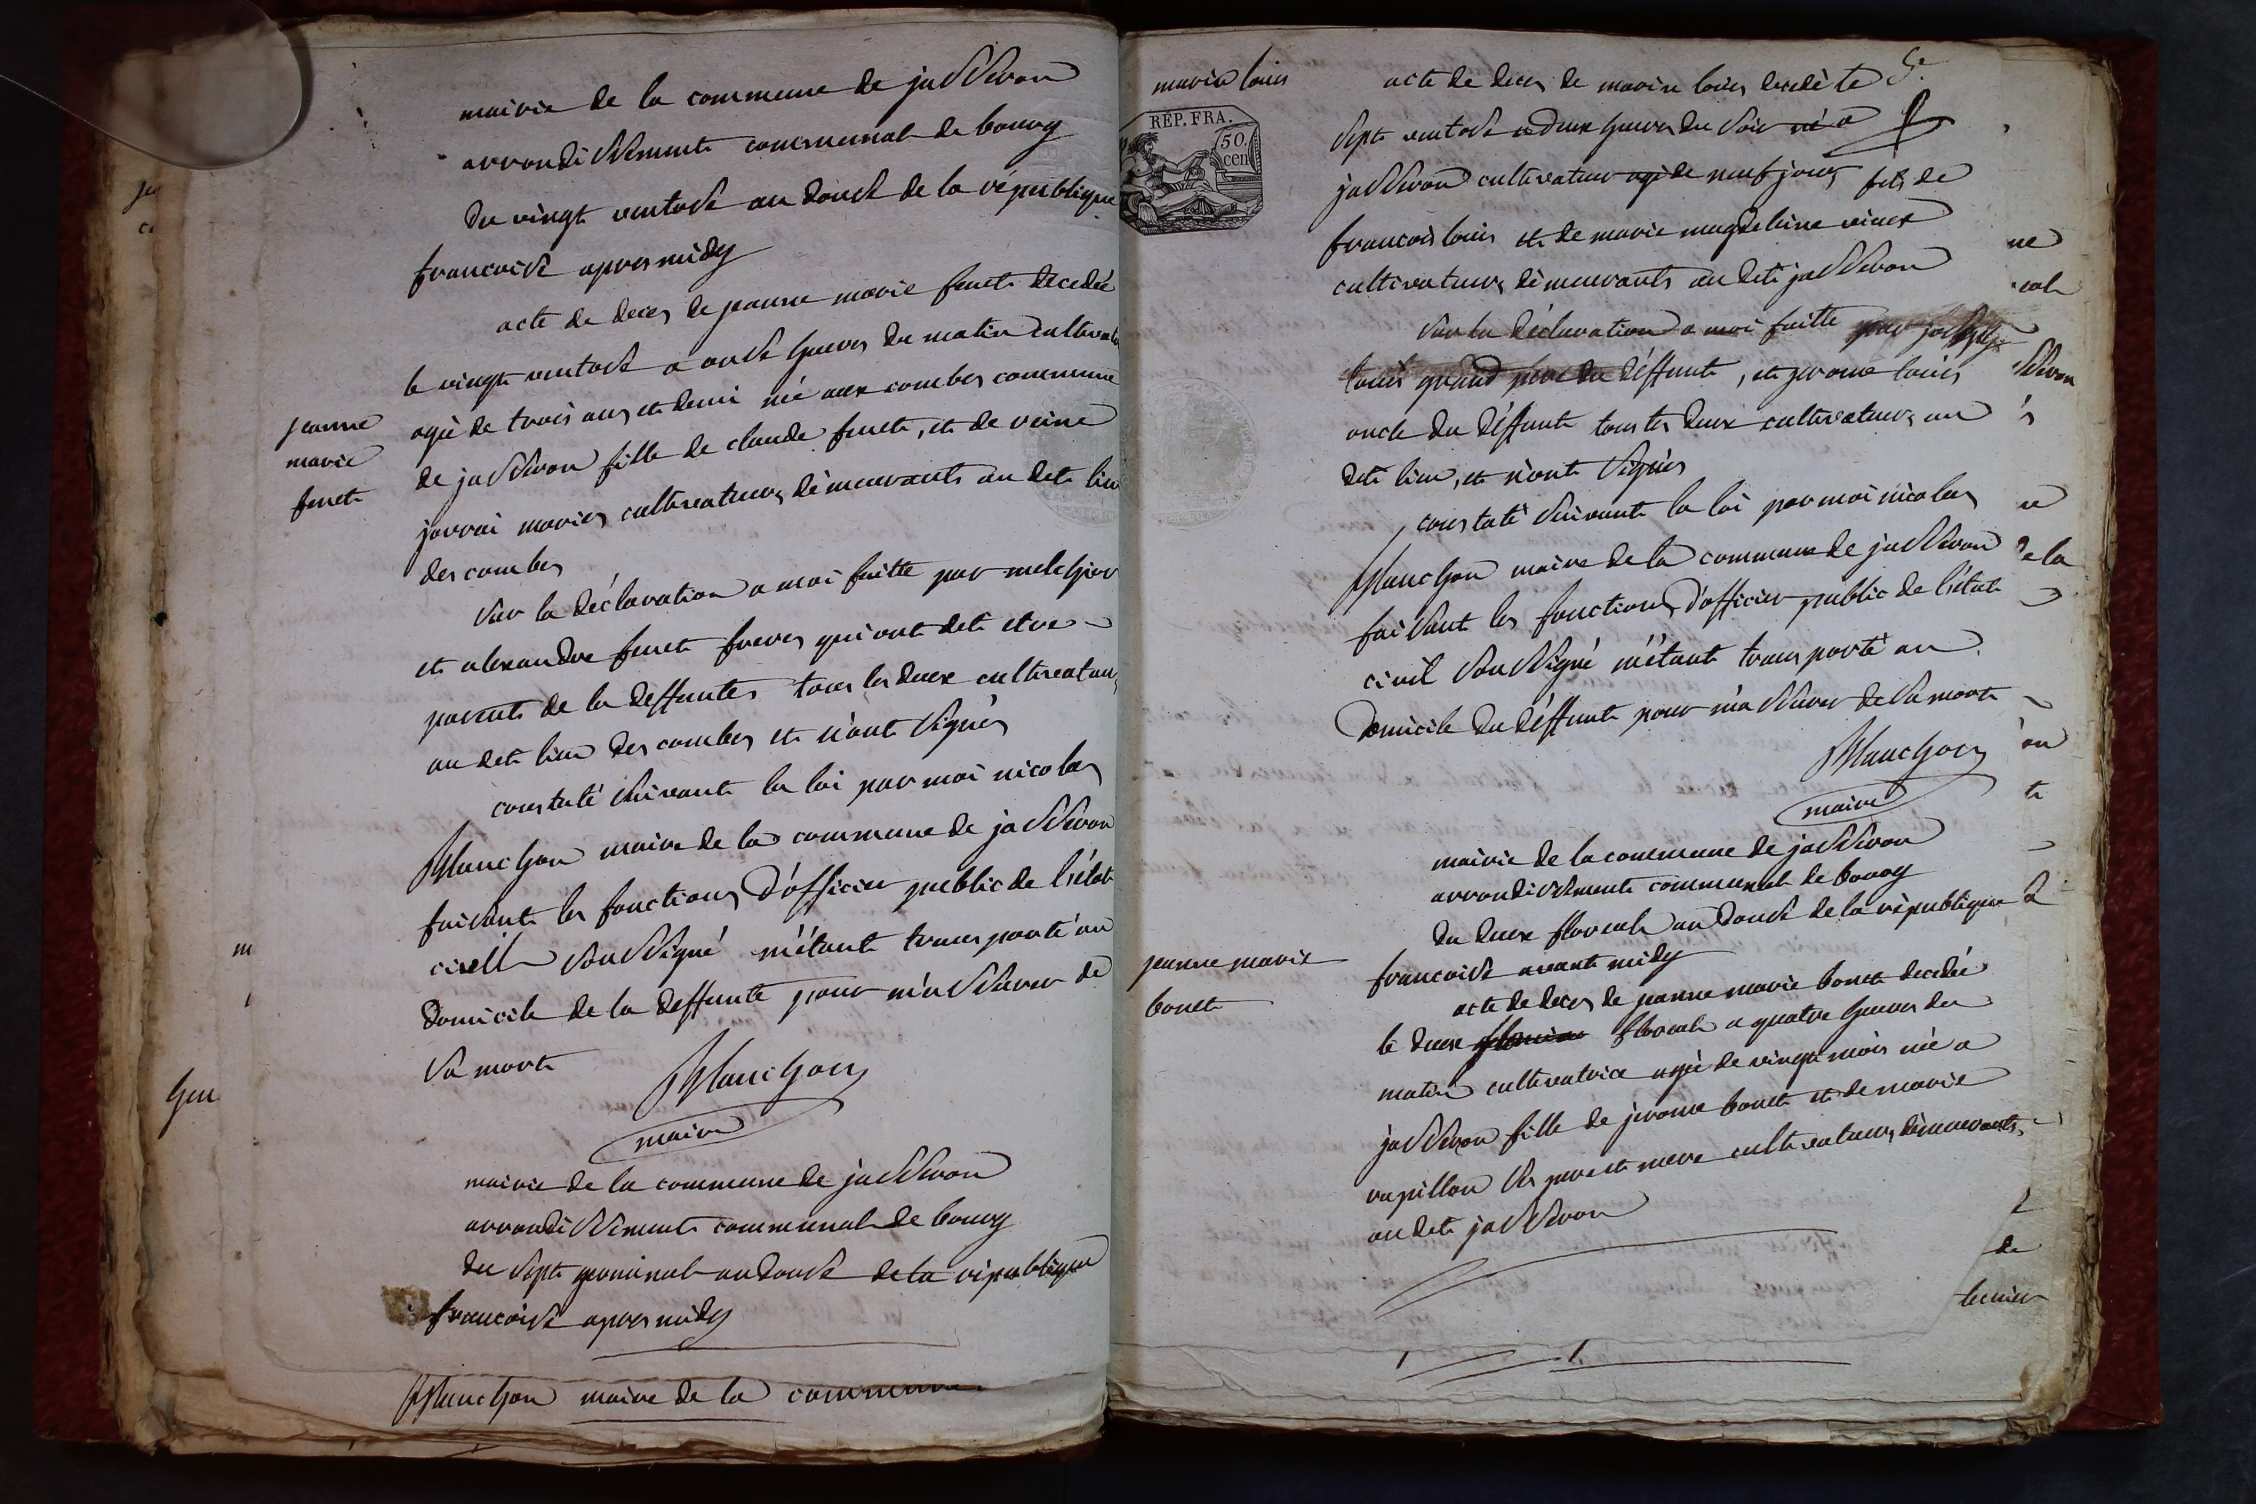 mairie de la commune de jasseron
arrondissement communal de bourg
du vingt ventose an douse de la république
francoise apres midy
acte de deces de jeanne marie feuct decedée
le vingt ventose a onse heures du matin cultivat
jeanne
marie
feuct
agée de trois ans et demi née aux combes commune
de jasseron fille de claude feuct, et de reine
jarrai mariés cultivateurs démeurants au dit lieu
des combes
sur la déclaration a moi faitte par melchior
et alexandre feuct freres qui ont dit etre
parents de la deffunte tous les deux cultivateurs
au dit lieu des combes et n'ont signés
constaté suivant la loi par moi nicolas
Planchon maire de la commune de jasseron
faisant les fonctions d'officier public de l'état
civill soussigné m'étant transporté au
domicile de la deffunte pour m'assurer de
sa mort
Planchon
maire
mairie de la commune de jasseron
arrondissement communal de bourg
du sept germinal an douse de la république
francoise apres midy
Planchon maire de la commune
marin louis
REP. FRA.
50.
cen
acte de deces de marin louis decedé le
sept ventose a deux heures du soir né a
jasseron cultivateur agé de neuf jours fils de
francois louis et de marie magdeleine
cultivateurs démeurants au dit jasseron
sur la déclaration a moi faitte par
louis grand pere du déffunt, et jerome louis
oncle du déffunt tous les deux cultivateurs au
dit lieu, et n'ont signés
constaté suivant la loi par moi nicolas
Planchon maire de la commune de jasseron
faisant les fonctions d'officier public de l'état
civil soussigné m'étant transporté au
domicile du déffunt pour m'assurer de sa mort
Planchon
maire
mairie de la commune de jasseron
arrondissement communal de bourg
du deux floreal an douse de la république
francoise avant midy
jeanne marie
bouct
acte de deces de jeanne marie bouct decedée
le deux floreal a quatre heures du
matin cultivatrice agée de vingt mois née a
jasseron fille de jerome bouct et de marie
rapillon ses pere et mere cultivateurs démeurants
au dit jasseron